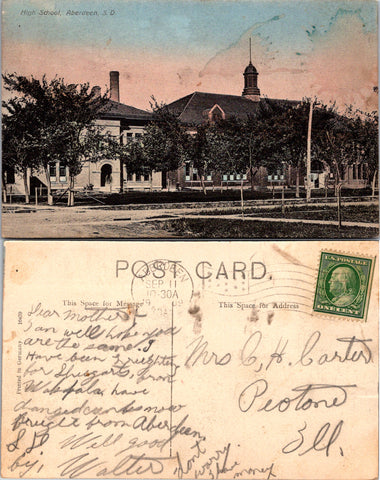 High School, Aberdeen, S.D.
POST CARD.
This Space for Message
This Space for Address
ABERDEEN
SEP 11
10-30A
U.S. POSTAGE
ONE CENT
1609
Printed in Germany
Dear Mother I
am well hope you
are the same. I
Have been
for from
have
now
from Aberdeen,
S.D. Will good
by, Walter
dont
worry
have
money
Mrs C, H, Carter
Peotone
Ill.